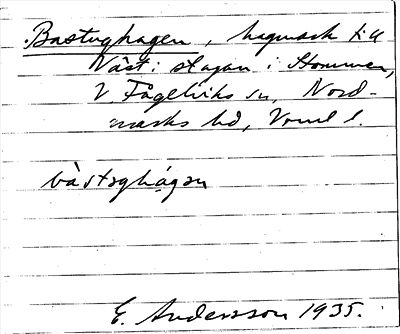 Bastughagen, hagmark till
Väst: stugan i Stommen,
V. Fågelviks sn, Nord-
marks hd, Värml l.
bàstughágən
E. Andersson 1935.